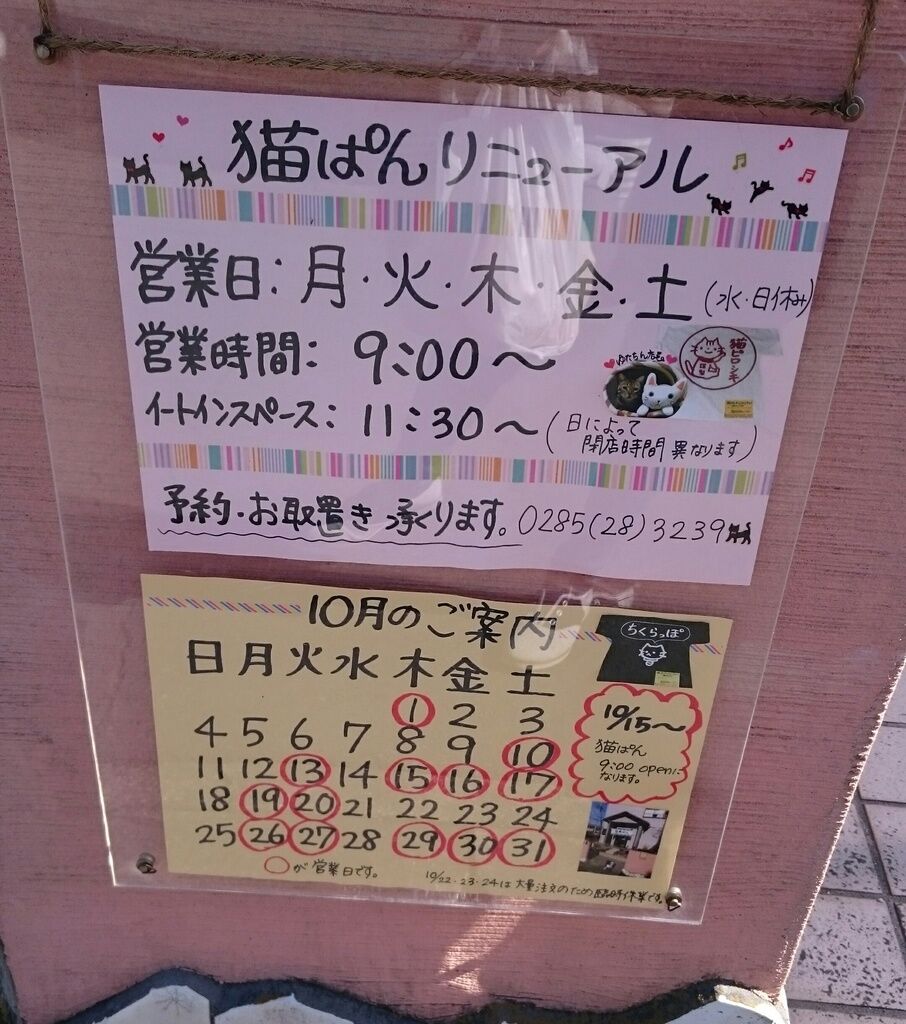 猫ぱんリニューアル
営業日:月・火・木・金・土(水・日休み)
営業時間:9:00〜
猫ピロシキ
イートインスペース:11:30〜(日によって
閉店時間異なります)
予約・お取置き承ります。0285(28)3239
10月のご案内
ちくらっぽ
日月火水木金土
1 2 3
4 5 6 7 8 9 10
11 12 13 14 15 16 17
18 19 20 21 22 23 24
25 26 27 28 29 30 31
10/15〜
猫ぱん
9:00 openに
なります。
○が営業日です。
10/22・23・24は大量注文のため臨時休業です。